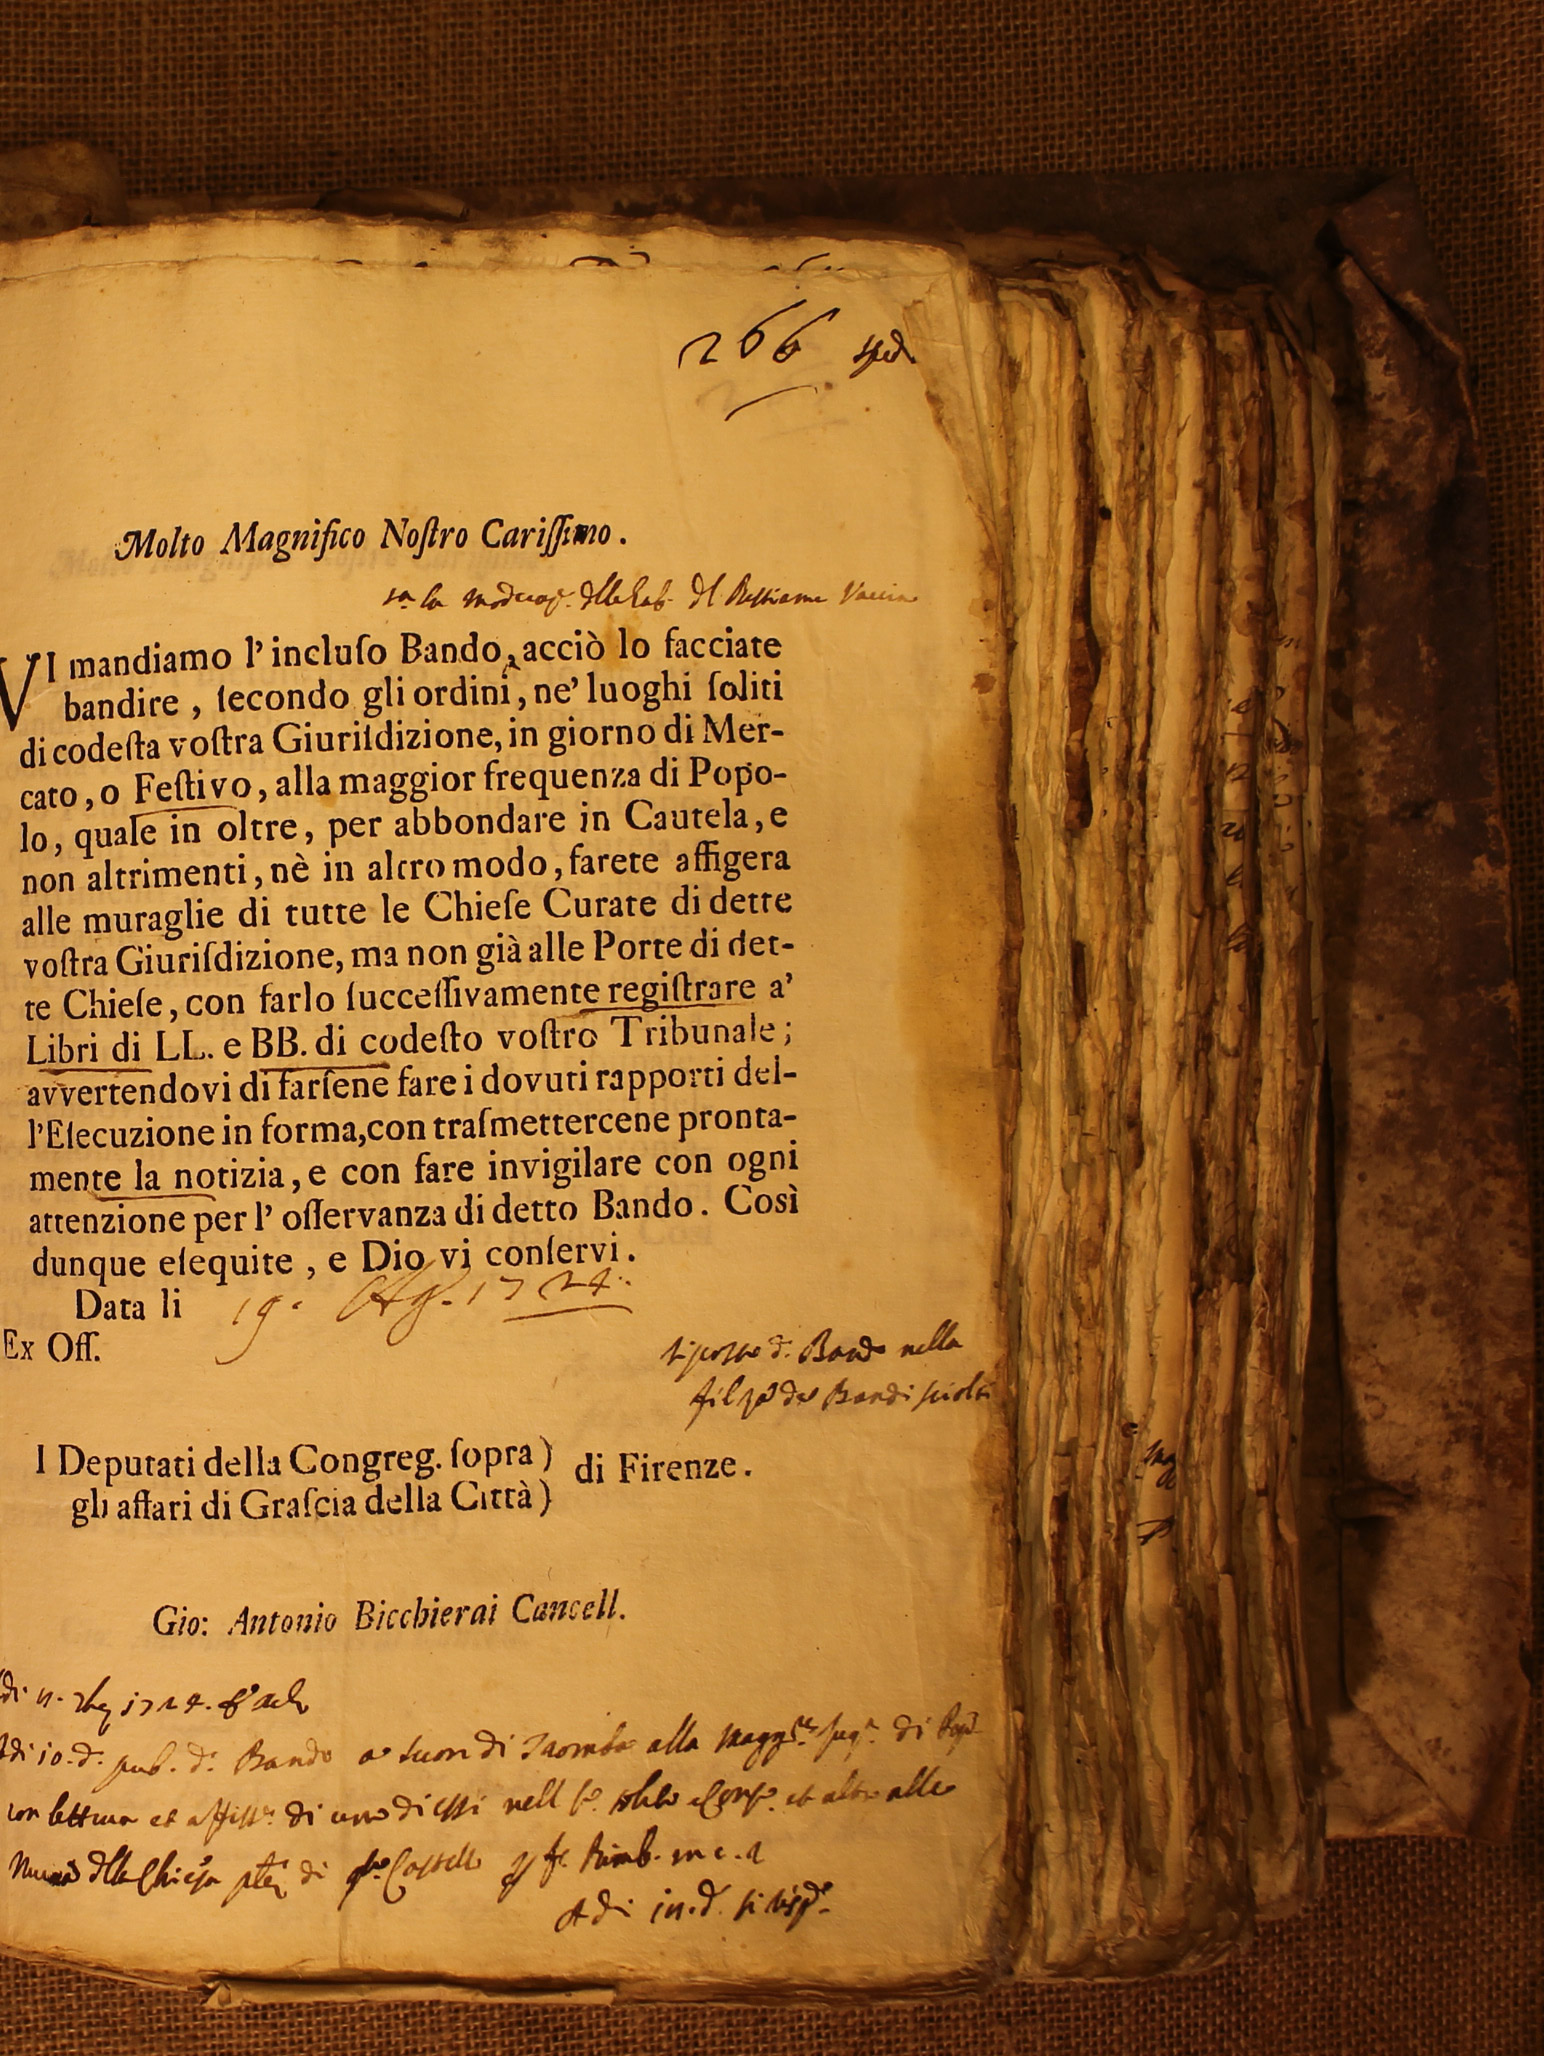 266 sped.
Molto Magnifico Noſtro Cariſſimo.
sa la del Bestiame Vaccin
VI mandiamo l' incluſo Bando, acciò lo facciate
bandire, ſecondo gli ordini, ne' luoghi ſoliti
di codeſta voſtra Giuriſdizione, in giorno di Mer-
cato, o Feſtivo, alla maggior frequenza di Popo-
lo, quale in oltre, per abbondare in Cautela, e
non altrimenti, nè in altro modo, farete affigera
alle muraglie di tutte le Chieſe Curate di dette
voſtra Giuriſdizione, ma non già alle Porte di det-
te Chieſe, con farlo ſucceſſivamente regiſtrare a'
Libri di LL. e BB. di codeſto voſtro Tribunale;
avvertendovi di farſene fare i dovuti rapporti del-
l'Eſecuzione in forma, con traſmettercene pronta-
mente la notizia, e con fare invigilare con ogni
attenzione per l' oſſervanza di detto Bando. Così
dunque eſequite, e Dio vi conſervi.
Data li 19. Ag. 1724.
Ex Off.
d. Bando nella
filza de Bandi sciolti
I Deputati della Congreg. ſopra)
gli affari di Graſcia della Città) di Firenze.
Gio: Antonio Bicchierai Cancell.
di 1724.
Adi 10. d. pub. d. Bando a suon di Tromba alla di
con lettura et di uno di essi nell et altro alle
Mura della Chiesa di Castello
Adi